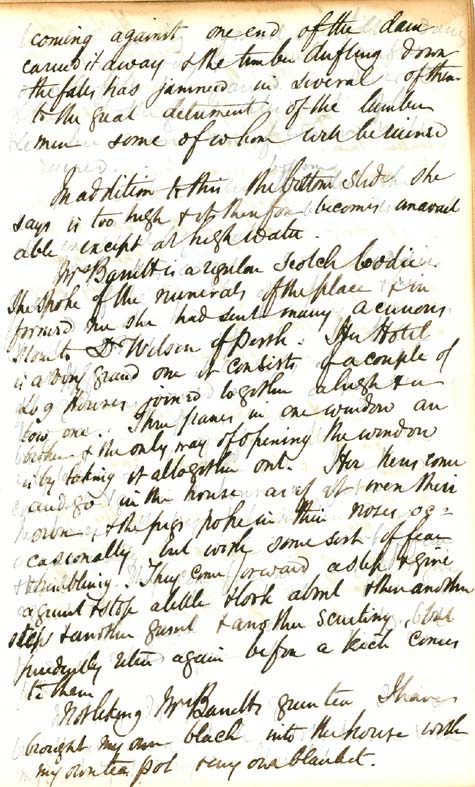 coming against one end of the dam
carried it away & the timber drifting down
the falls has jammed in several of them
to the great detriment of the lumber
men some of whom will be ruined
In addition to this the bottom slide she
says is too high & it therefore becomes unavail
able except at high water.
Mrs Barritt is a regular Scotch bodie.
She spoke of the minerals of the place & in
formed me she had sent many a curious
stone to Dr Wilson of Perth. Her Hotel
is a very grand one it consists of a couple of
Log Houses joined together a high & a
low one. Three panes in one window are
broken & the only way of opening the window
is by taking it altogether out. Her hens come
and go in the house as if it were their
own & the pigs poke in their noses oc=
casionally but with some sort of fear
& trembling. They come forward a step & give
a grunt & stop a little & look about & then another
step & another grunt & another scrutiny but
prudently retire again before a kick comes
to them
Not liking Mrs Barritts green tea I have
brought my own black into the house with
my own tea pot & my own blanket.